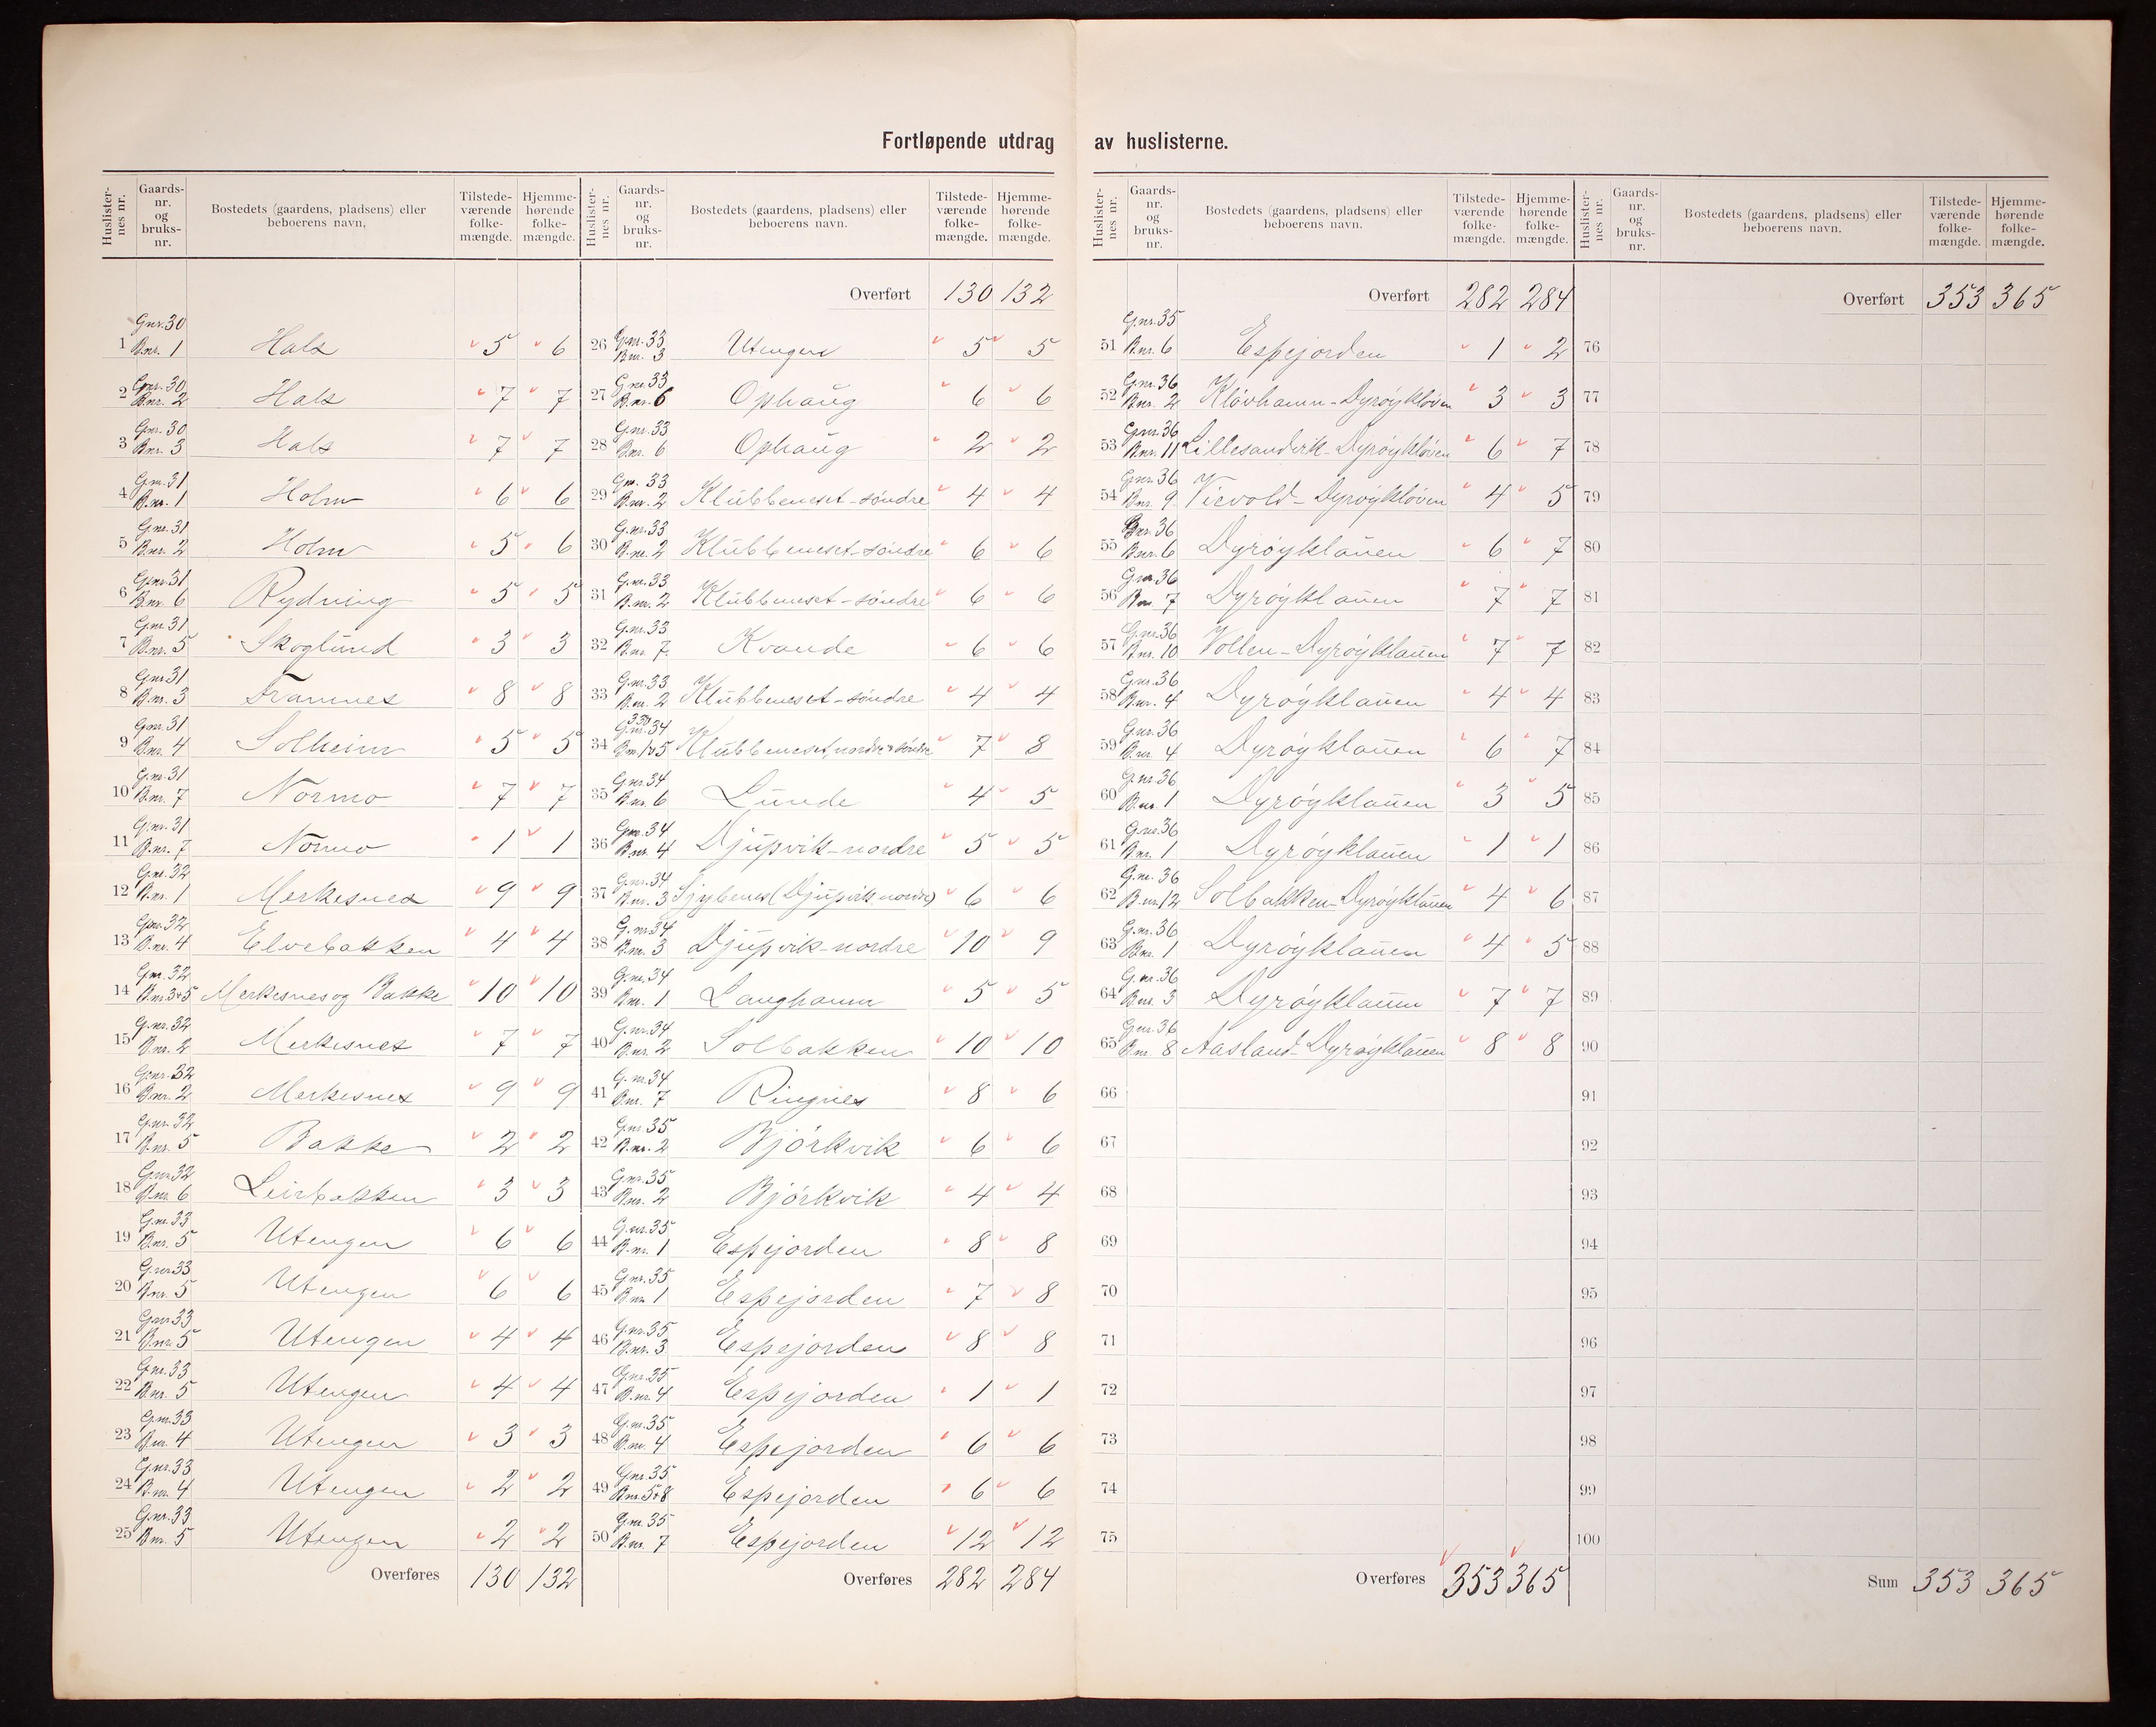 Fortløpende utdrag av huslisterne.
Huslister-nes nr. Gaards-nr. og bruks-nr. Bostedets (gaardens, pladsens) eller beboerens navn, Tilstede-værende folke-mængde. Hjemme-hørende folke-mængde.
1 Gnr. 30 Bnr. 1 Hals 5 6
2 Gnr. 30 Bnr. 2 Hals 7 7
3 Gnr. 30 Bnr. 3 Hals 7 7
4 Gnr. 31 Bnr. 1 Holm 6 6
5 Gnr. 31 Bnr. 2 Holm 5 6
6 Gnr. 31 Bnr. 6 Rydning 5 5
7 Gnr. 31 Bnr. 5 Skoglund 3 3
8 Gnr. 31 Bnr. 3 Framnes 8 8
9 Gnr. 31 Bnr. 4 Solheim 5 5
10 Gnr. 31 Bnr. 7 Normo 7 7
11 Gnr. 31 Bnr. 7 Normo 1 1
12 Gnr. 32 Bnr. 1 Merkesnes 9 9
13 Gnr. 32 Bnr. 4 Elvebakken 4 4
14 Gnr. 32 Bnr. 3+5 Merkesnes og Bakke 10 10
15 Gnr. 32 Bnr. 2 Merkesnes 7 7
16 Gnr. 32 Bnr. 2 Merkesnes 9 9
17 Gnr. 32 Bnr. 5 Bakke 2 2
18 Gnr. 32 Bnr. 6 Leirbakken 3 3
19 Gnr. 33 Bnr. 5 Utengen 6 6
20 Gnr. 33 Bnr. 5 Utengen 6 6
21 Gnr. 33 Bnr. 5 Utengen 4 4
22 Gnr. 33 Bnr. 5 Utengen 4 4
23 Gnr. 33 Bnr. 4 Utengen 3 3
24 Gnr. 33 Bnr. 4 Utengen 2 2
25 Gnr. 33 Bnr. 5 Utengen 2 2
Overføres 130 132
Huslister-nes nr. Gaards-nr. og bruks-nr. Bostedets (gaardens, pladsens) eller beboerens navn. Tilstede-værende folke-mængde. Hjemme-hørende folke-mængde.
Overført 130 132
26 Gnr. 33 Bnr. 3 Utengen 5 5
27 Gnr. 33 Bnr. 6 Ophaug 6 6
28 Gnr. 33 Bnr. 6 Ophaug 2 2
29 Gnr. 33 Bnr. 2 Klubbeneset-søndre 4 4
30 Gnr. 33 Bnr. 2 Klubbeneset-søndre 6 6
31 Gnr. 33 Bnr. 2 Klubbeneset-søndre 6 6
32 Gnr. 33 Bnr. 7 Kvande 6 6
33 Gnr. 33 Bnr. 2 Klubbeneset-søndre 4 4
34 Gnr. 33 34 Bnr. 1+5 Klubbeneset, nordre + søndre 7 8
35 Gnr. 34 Bnr. 6 Lunde 4 5
36 Gnr. 34 Bnr. 4 Djupvik-nordre 5 5
37 Gnr. 34 Bnr. 3 (Djupvik nordre) 6 6
38 Gnr. 34 Bnr. 3 Djupvik-nordre 10 9
39 Gnr. 34 Bnr. 1 Langhamn 5 5
40 Gnr. 34 Bnr. 2 Solbakken 10 10
41 Gnr. 34 Bnr. 7 Ringnes 8 6
42 Gnr. 35 Bnr. 2 Bjørkvik 6 6
43 Gnr. 35 Bnr. 2 Bjørkvik 4 4
44 Gnr. 35 Bnr. 1 Espejorden 8 8
45 Gnr. 35 Bnr. 1 Espejorden 7 8
46 Gnr. 35 Bnr. 3 Espejorden 8 8
47 Gnr. 35 Bnr. 4 Espejorden 1 1
48 Gnr. 35 Bnr. 4 Espejorden 6 6
49 Gnr. 35 Bnr. 5+8 Espejorden 6 6
50 Gnr. 35 Bnr. 7 Espejorden 12 12
Overføres 282 284
Huslister-nes nr. Gaards-nr. og bruks-nr. Bostedets (gaardens, pladsens) eller beboerens navn. Tilstede-værende folke-mængde. Hjemme-hørende folke-mængde.
Overført 282 284
51 Gnr. 35 Bnr. 6 Espejorden 1 2
52 Gnr. 36 Bnr. 2 Kløvhamn-Dyrøykløven 3 3
53 Gnr. 36 Bnr. 11 Lillesandvik-Dyrøykløven 6 7
54 Gnr. 36 Bnr. 9 Vievold-Dyrøykløven 4 5
55 Gnr. 36 Bnr. 6 Dyrøyklauen 6 7
56 Gnr. 36 Bnr. 7 Dyrøyklauen 7 7
57 Gnr. 36 Bnr. 10 Vollen-Dyrøyklauen 7 7
58 Gnr. 36 Bnr. 4 Dyrøyklauen 4 4
59 Gnr. 36 Bnr. 4 Dyrøyklauen 6 7
60 Gnr. 36 Bnr. 1 Dyrøyklauen 3 5
61 Gnr. 36 Bnr. 1 Dyrøyklauen 1 1
62 Gnr. 36 Bnr. 12 Solbakken-Dyrøyklauen 4 6
63 Gnr. 36 Bnr. 1 Dyrøyklauen 4 5
64 Gnr. 36 Bnr. 3 Dyrøyklauen 7 7
65 Gnr. 36 Bnr. 8 Aasland-Dyrøyklauen 8 8
66
67
68
69
70
71
72
73
74
75
Overføres 353 365
Huslister-nes nr. Gaards-nr. og bruks-nr. Bostedets (gaardens, pladsens) eller beboerens navn. Tilstede-værende folke-mængde. Hjemme-hørende folke-mængde.
Overført 353 365
76
77
78
79
80
81
82
83
84
85
86
87
88
89
90
91
92
93
94
95
96
97
98
99
100
Sum 353 365